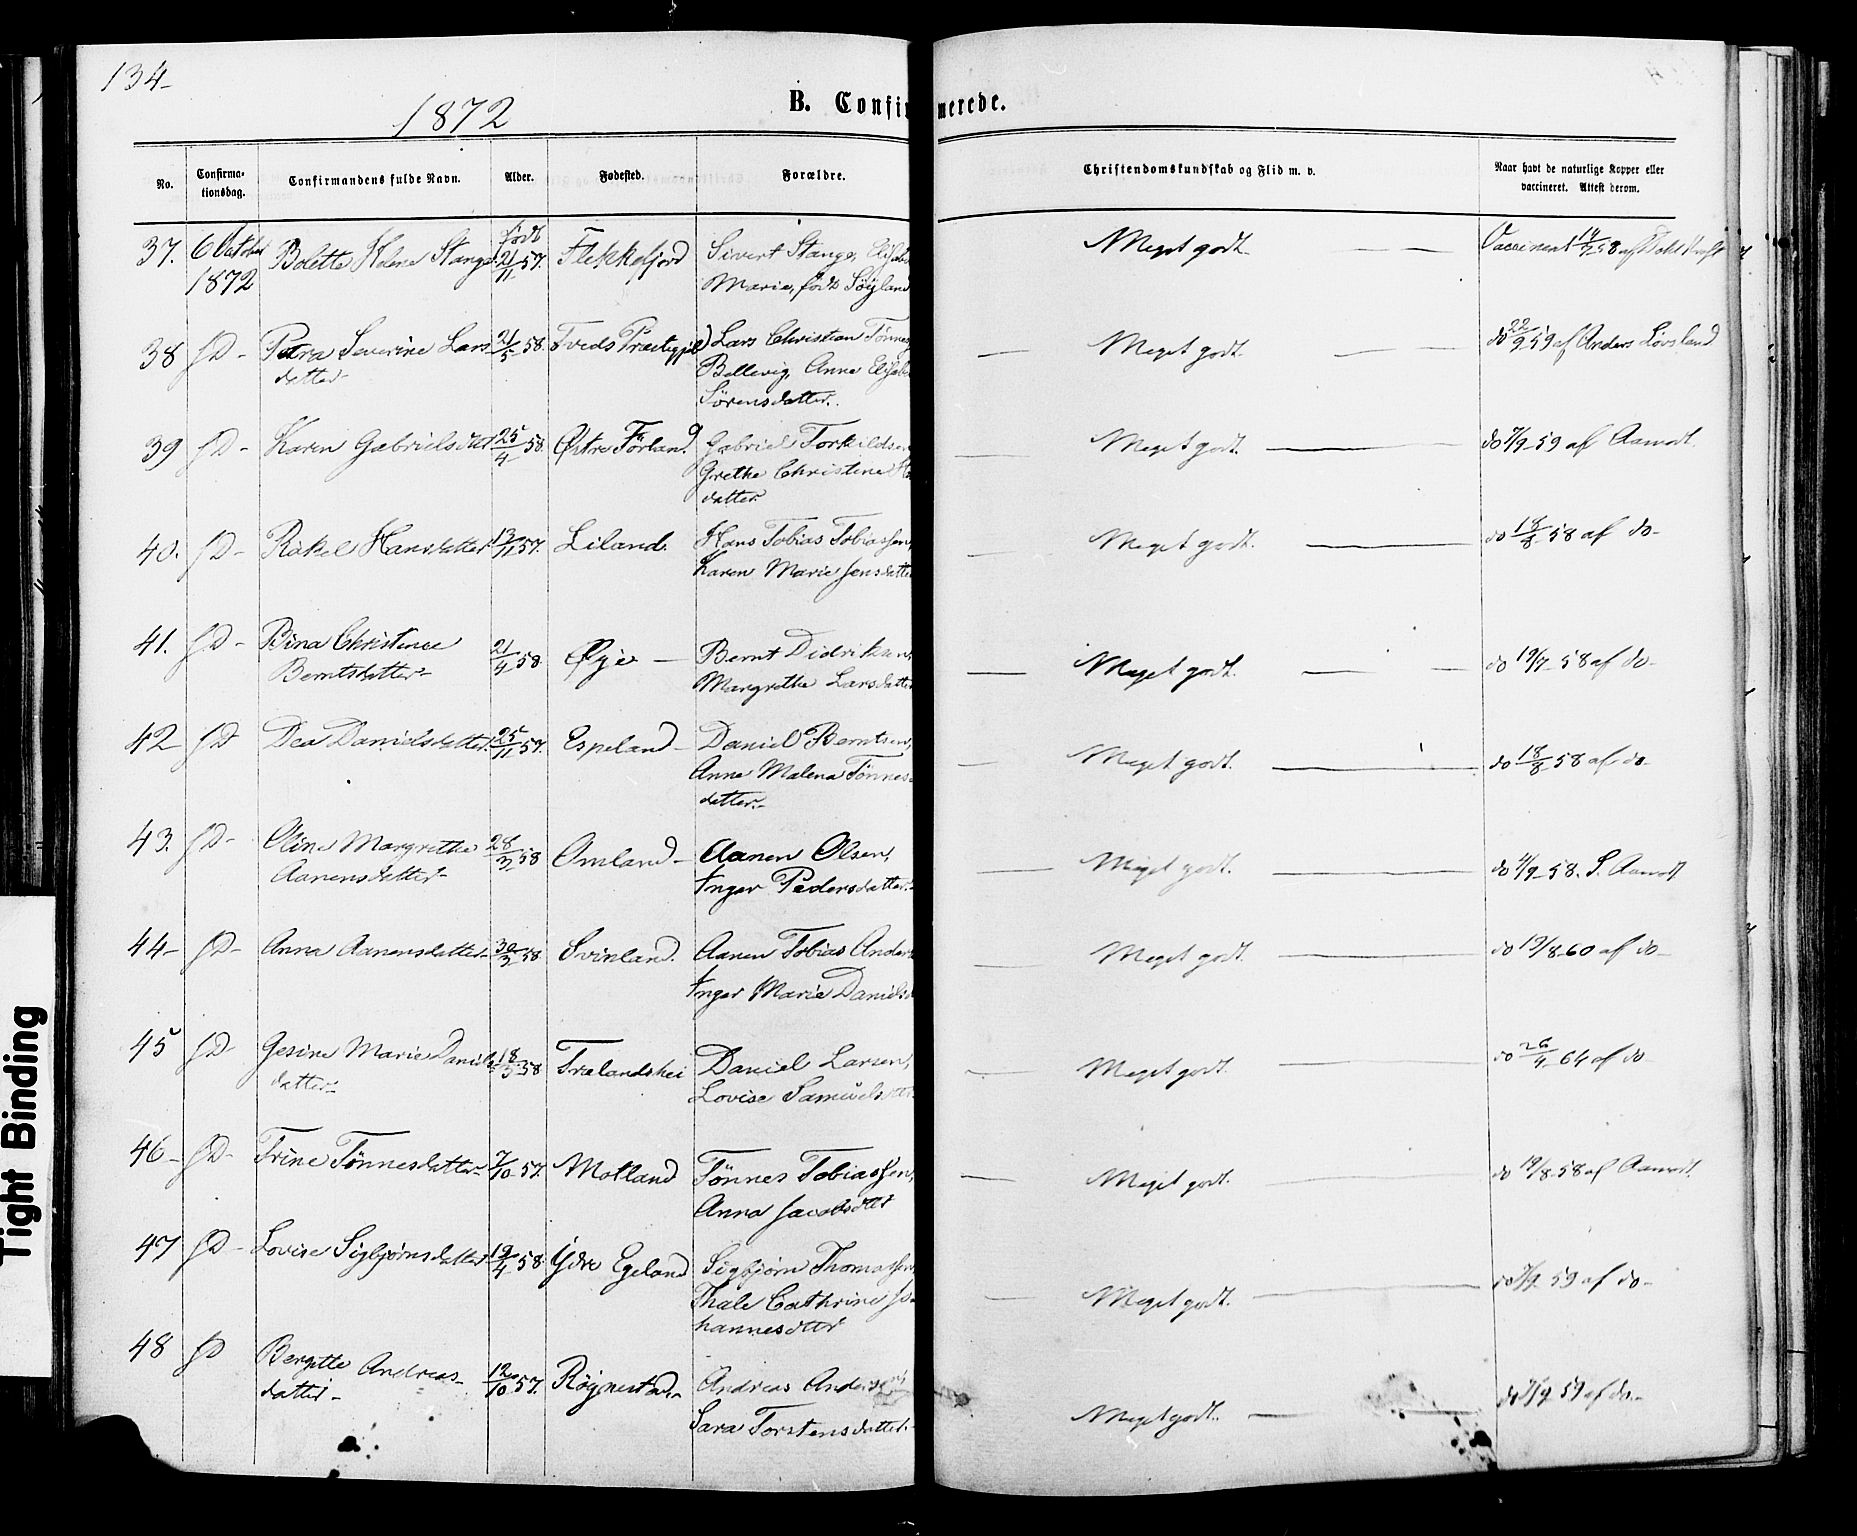 134-
1872
B. Confirmerede.
No. Confirma-tionsdag. Confirmandens fulde Navn. Alder. Fødested. Forældre. Christendomskundskab og Flid m. v. Naar havt de naturlige Kopper eller vaccineret. Attest derom.
37. 6 1872 Bolette Stange født 21/11 57. Flekkefjord Sivert Stange, Marie, født Søyland Meget godt. af
38 D- Petra Severine Lars-datter 21/5 58. Tveds Lars Christian Tønnes Bellevig, Anne Sörensdatter. Meget godt. do 22/9 59 af Anders Lövsland
39 D- Karen Gabrielsdtter 25/4 58. Østre Förland. Gabriel Torkildsen Grethe Christine datter Meget godt. do 7/9 59 af Aamodt.
40. D- Rakel Hansdatter 13/11 57. Liland. Hans Tobias Tobiassen, Karen Marie Jensdatter Meget godt. do 18/8 58 af do-
41. D- Bina Christence Berntsdatter- 21/4 58. Øye- Bernt Didriksen Margrethe Larsdatter Meget godt. do 19/7 58 af do-
42 D Dea Danielsdatter. 25/11 57. Espeland- Daniel Berntsen, Anne Malena Tønnes datter.- Meget godt. do 18/8 58 af do-
43. D- Oline Margrethe Aanensdatter- 28/3 58 Omland- Aanen Olsen, Inger Pedersdatter.- Meget godt. do 4/9-58. S. Aamodt
44- D- Anna Aanensdatter- 30/3 58 Svinland. Aanen Tobias Anders Inger Marie Daniels Meget godt. do 19/8-60 af do-
45 D- Gesine Marie Daniels datter- 18/5 58 Trælandshei Daniel Larsen, Lovise Samuelsdtter Meget godt. do 26/4 64 af do-
46- D- Trine Tönnesdatter- 7/10 57. Motland Tönnes Tobiassen, Anna Jacobsdtter Meget godt. do 19/8 58 af Aamodt.
47 D- Lovise Sigbjørnsdatter 19/4 58. Ydre Egeland Sigbjørn Thomassen, Thale Cathrine Jo-hannesdtter Meget godt. do 7/9 59 af do-
48 D Bergitte Andreas-datter- 12/10 57. Røynestad- Andreas Andersen Sara Torstensdatter.- Meget godt. do 7/9 59 af do-
Tight Binding